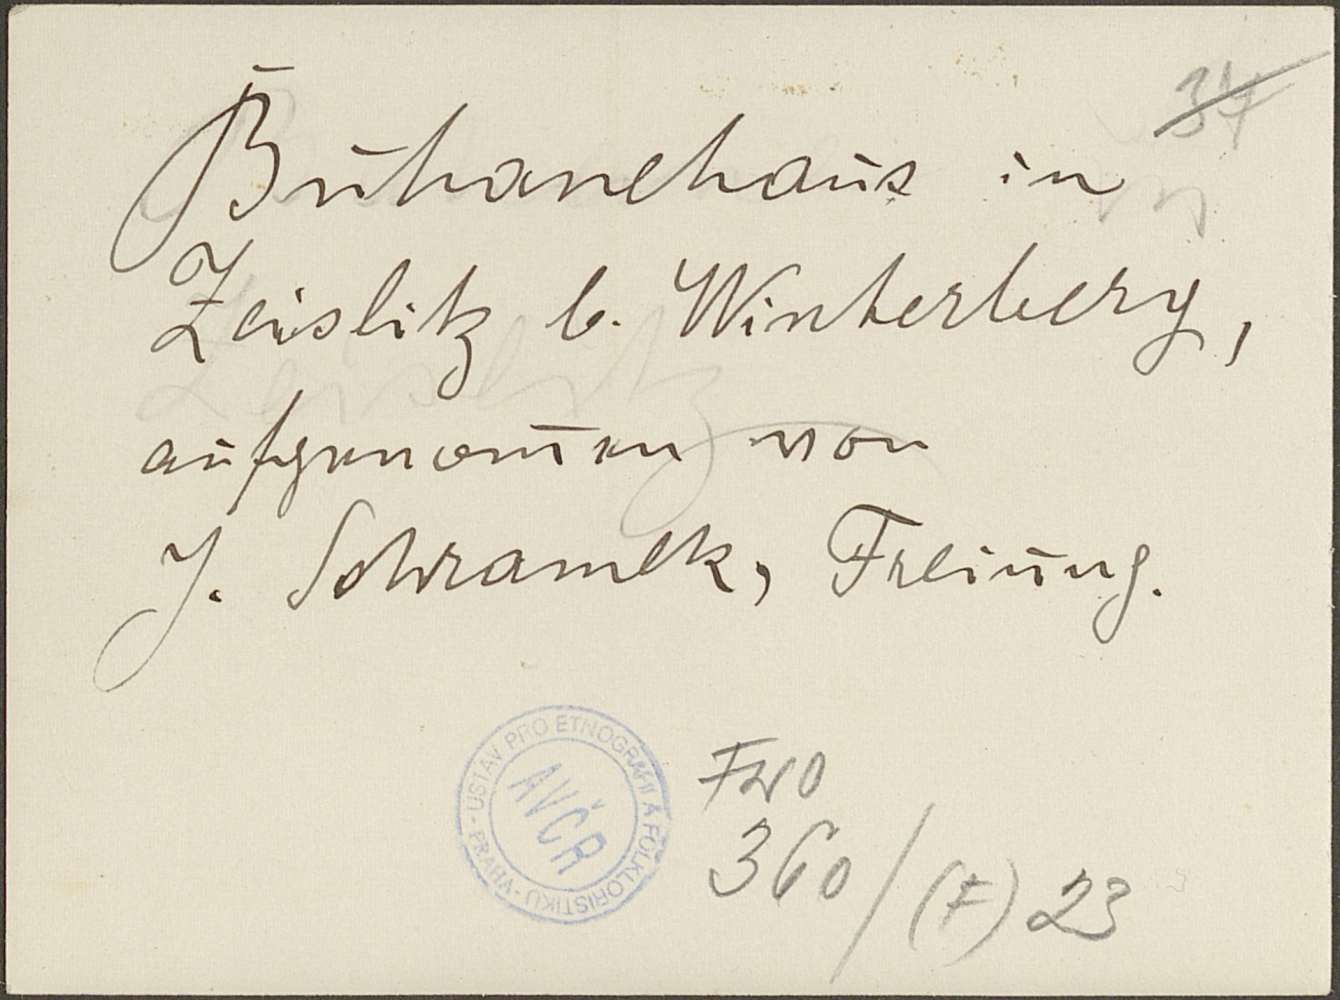 34
Buhanehaus in
Zeislitz b. Winterberg,
aufgenom̄en von
J. Schramek, Freiung.
ÚSTAV PRO ETNOGRAFII A FOLKLORISTIKU - PRAHA -
AVČR
FWO
360/(F) 23